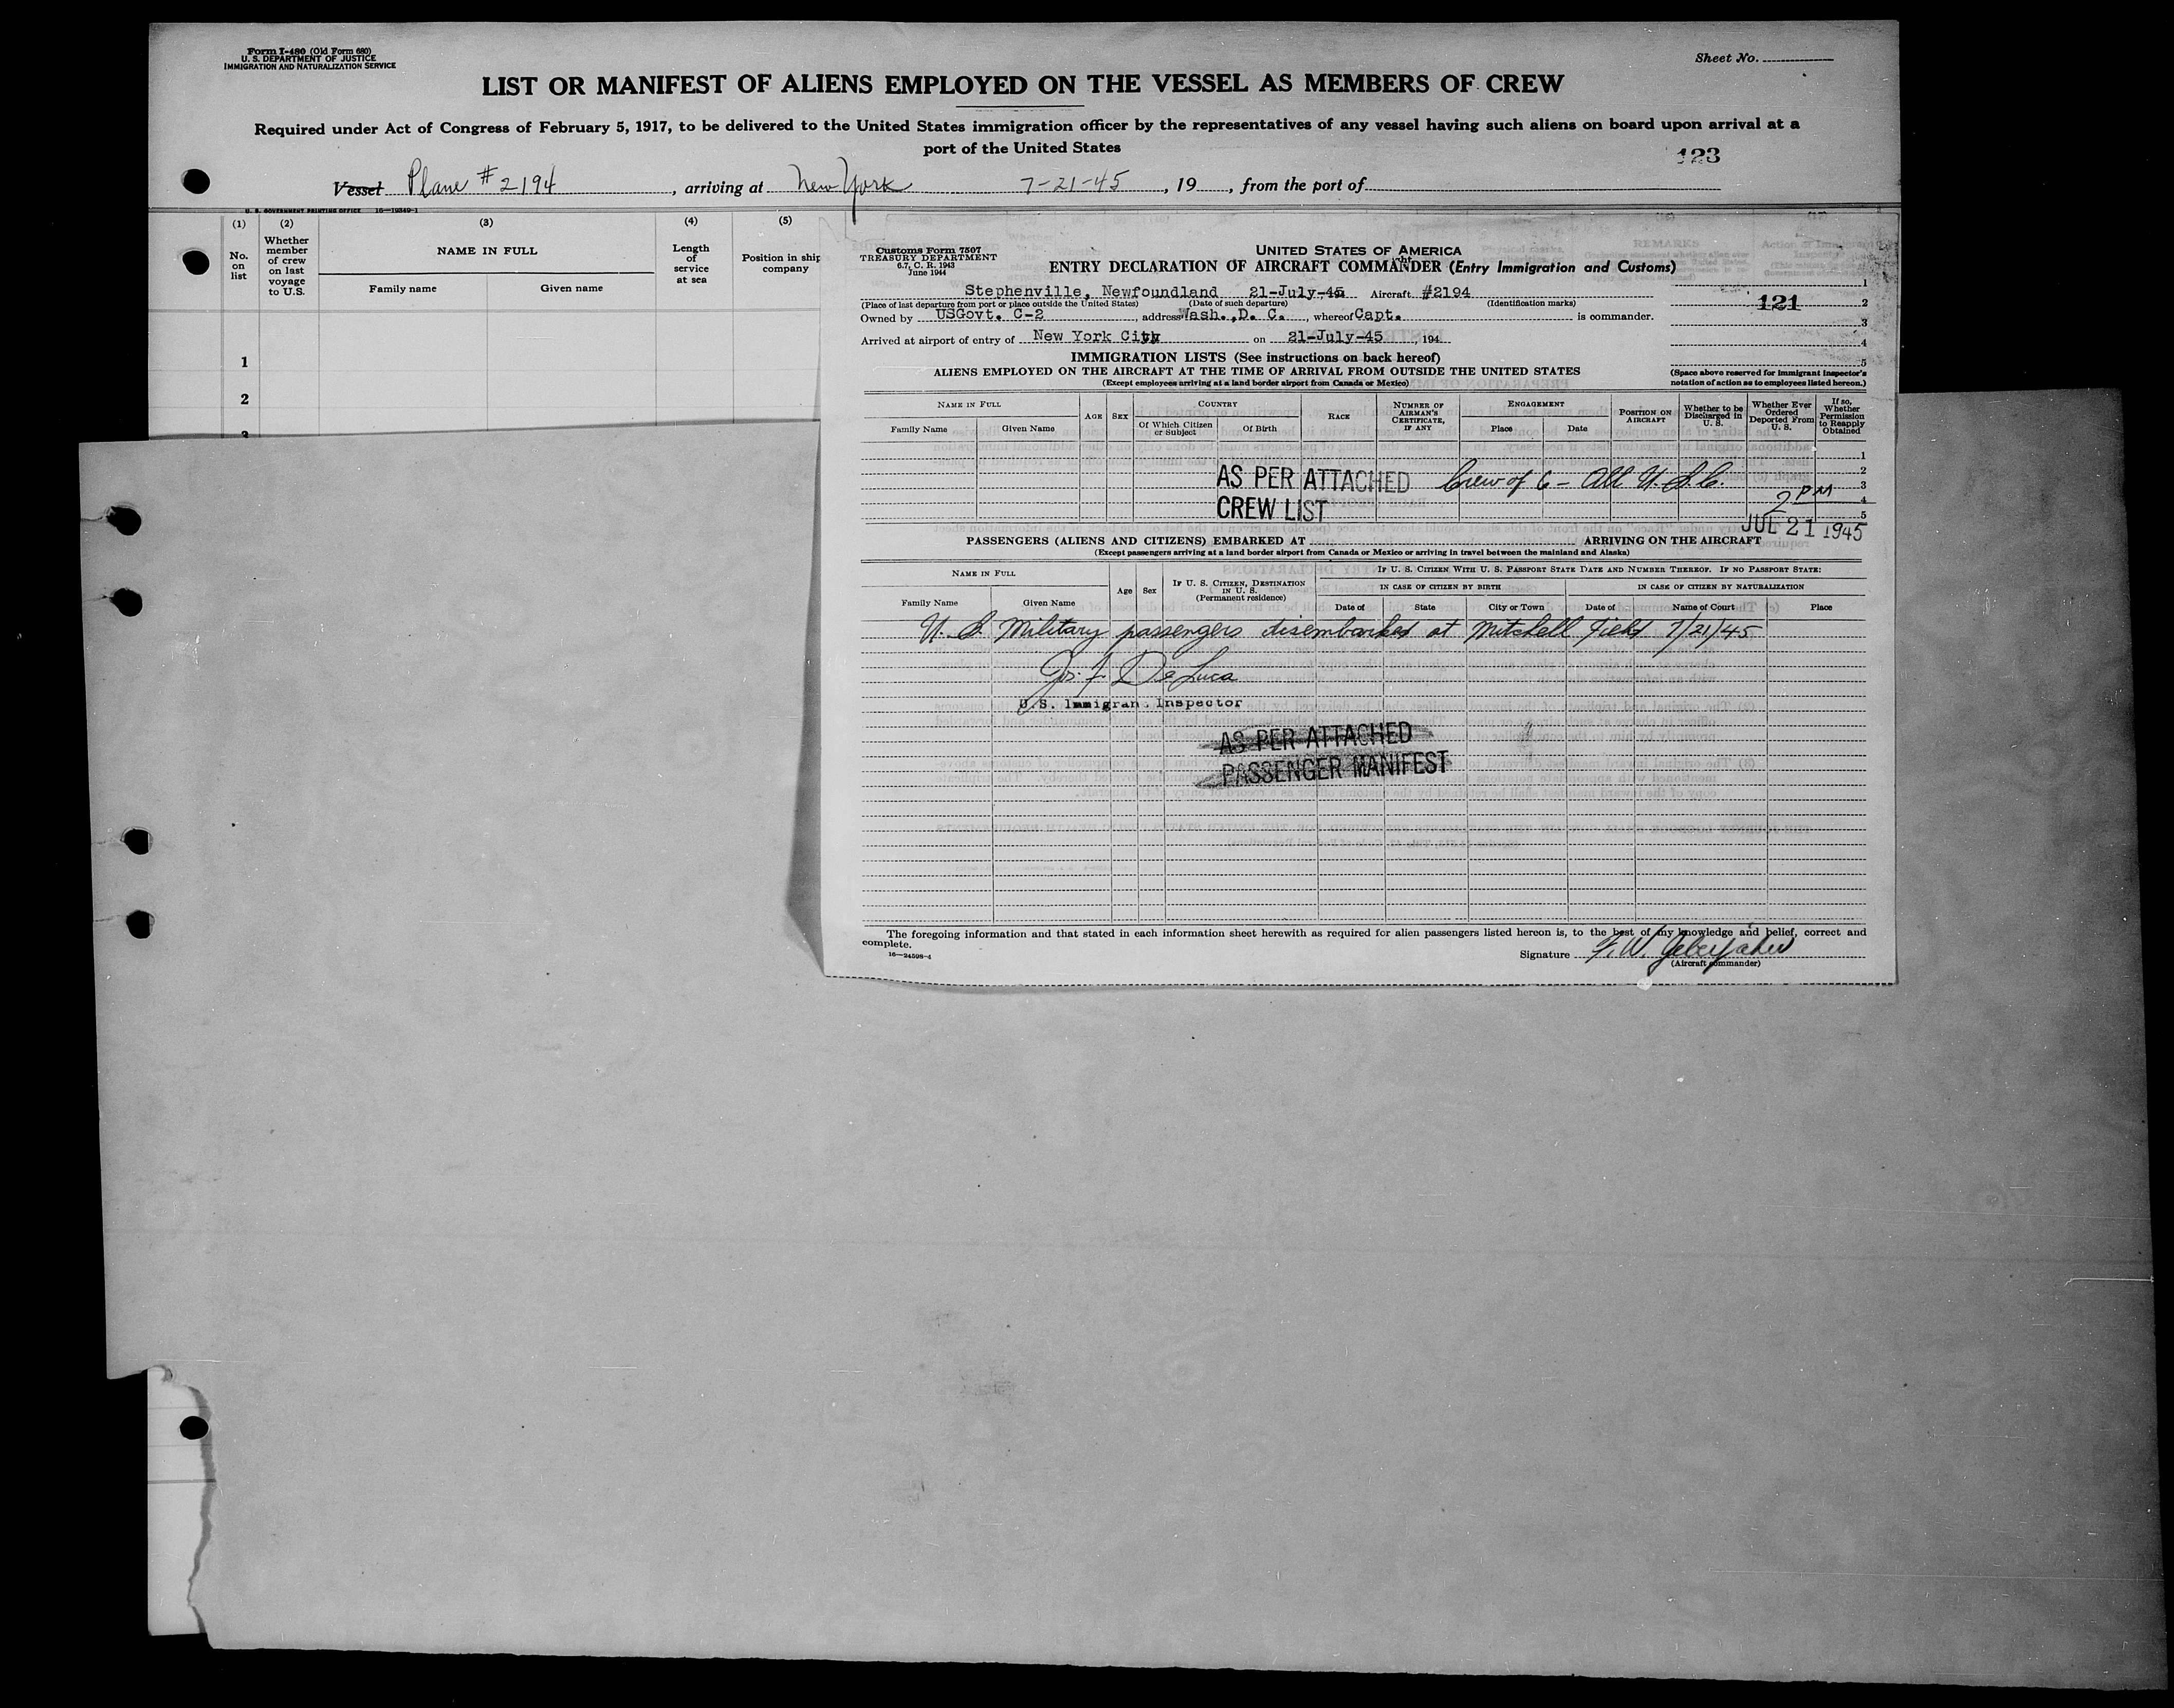 Form I-480 (Old Form 680)
U. S. DEPARTMENT OF JUSTICE
IMMIGRATION AND NATURALIZATION SERVICE
Sheet No.
LIST OR MANIFEST OF ALIENS EMPLOYED ON THE VESSEL AS MEMBERS OF CREW
Required under Act of Congress of February 5, 1917, to be delivered to the United States immigration officer by the representatives of any vessel having such aliens on board upon arrival at a
port of the United States
123
Vessel Plane # 2194, arriving at New York 7-21-45, 19, from the port of
U. S. GOVERNMENT PRINTING OFFICE 16—19349-1
(1) (2) (3) (4) (5)
No. on list
Whether member of crew on last voyage to U.S.
NAME IN FULL
Family name Given name
Length of service at sea
Position in ship company
1
2
3
Customs Form 7507
TREASURY DEPARTMENT
6.7, C. R. 1943
June 1944
UNITED STATES OF AMERICA
ENTRY DECLARATION OF AIRCRAFT COMMANDER (Entry Immigration and Customs)
Stephenville, Newfoundland 21-July-45 Aircraft #2194
(Place of last departure from port or place outside the United States) (Date of such departure) (Identification marks)
Owned by USGovt. C-2, address Wash., D. C., whereof Capt. is commander.
Arrived at airport of entry of New York City on 21-July-45, 194
1
121 2
3
4
5
(Space above reserved for Immigrant Inspector's notation of action as to employees listed hereon.)
IMMIGRATION LISTS (See instructions on back hereof)
ALIENS EMPLOYED ON THE AIRCRAFT AT THE TIME OF ARRIVAL FROM OUTSIDE THE UNITED STATES
(Except employees arriving at a land border airport from Canada or Mexico)
NAME IN FULL
Family Name Given Name
AGE SEX
COUNTRY
Of Which Citizen or Subject Of Birth
RACE
NUMBER OF AIRMAN'S CERTIFICATE, IF ANY
ENGAGEMENT
Place Date
POSITION ON AIRCRAFT
Whether to be Discharged in U. S.
Whether Ever Ordered Deported From U. S.
If so, Whether Permission to Reapply Obtained
1
2
3
4
5
AS PER ATTACHED Crew of 6 - All U. S. C.
CREW LIST
2 PM
JUL 21 1945
PASSENGERS (ALIENS AND CITIZENS) EMBARKED AT ARRIVING ON THE AIRCRAFT
(Except passengers arriving at a land border airport from Canada or Mexico or arriving in travel between the mainland and Alaska)
NAME IN FULL
Family Name Given Name
Age Sex
IF U. S. CITIZEN, DESTINATION IN U. S. (Permanent residence)
IF U. S. CITIZEN WITH U. S. PASSPORT STATE DATE AND NUMBER THEREOF. IF NO PASSPORT STATE:
IN CASE OF CITIZEN BY BIRTH IN CASE OF CITIZEN BY NATURALIZATION
Date of State City or Town Date of Name of Court Place
U. S. Military passengers disembarked at Mitchell Field 7/21/45
Jos. F. De Luca
U.S. Immigrant Inspector
AS PER ATTACHED
PASSENGER MANIFEST
The foregoing information and that stated in each information sheet herewith as required for alien passengers listed hereon is, to the best of my knowledge and belief, correct and
complete.
16—24598-4
Signature F. W.
(Aircraft commander)